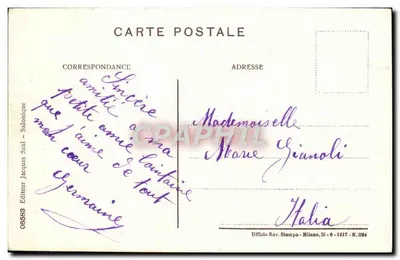 CARTE POSTALE
CORRESPONDANCE
ADRESSE
Sincère
amitié à ma
petite amie lointaine
que j'aime de tout
mon cœur
Germaine
Mademoiselle
Marie Gianoli
Italia
08383 Editeur Jacques Saul - Salonique
CPAPHIL
Ufficio Rev. Stampa - Milano, 15-6-1917 - N. 1194